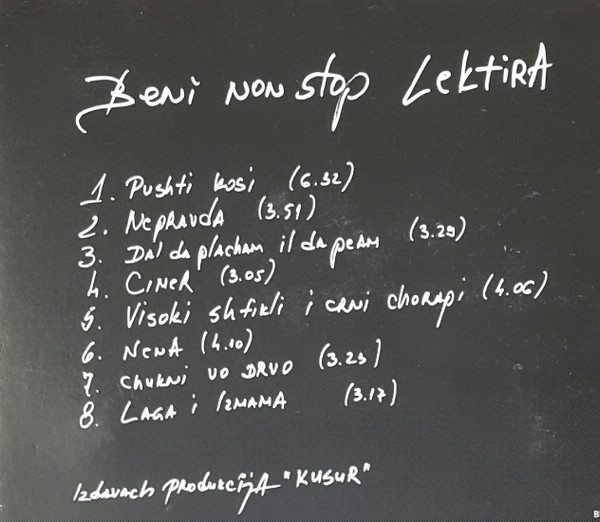 Beni non stop Lektira
1. Pushti kosi (6.32)
2. Nepravda (3.51)
3. Dal da placham il da peam (3.29)
4. Ciner (3.05)
5. Visoki shtikli i crni chorapi (4.06)
6. Nena (4.10)
7. Chukni vo drvo (3.23)
8. Laga i Izmama (3.17)
Izdavach produkcija "KUSUR"